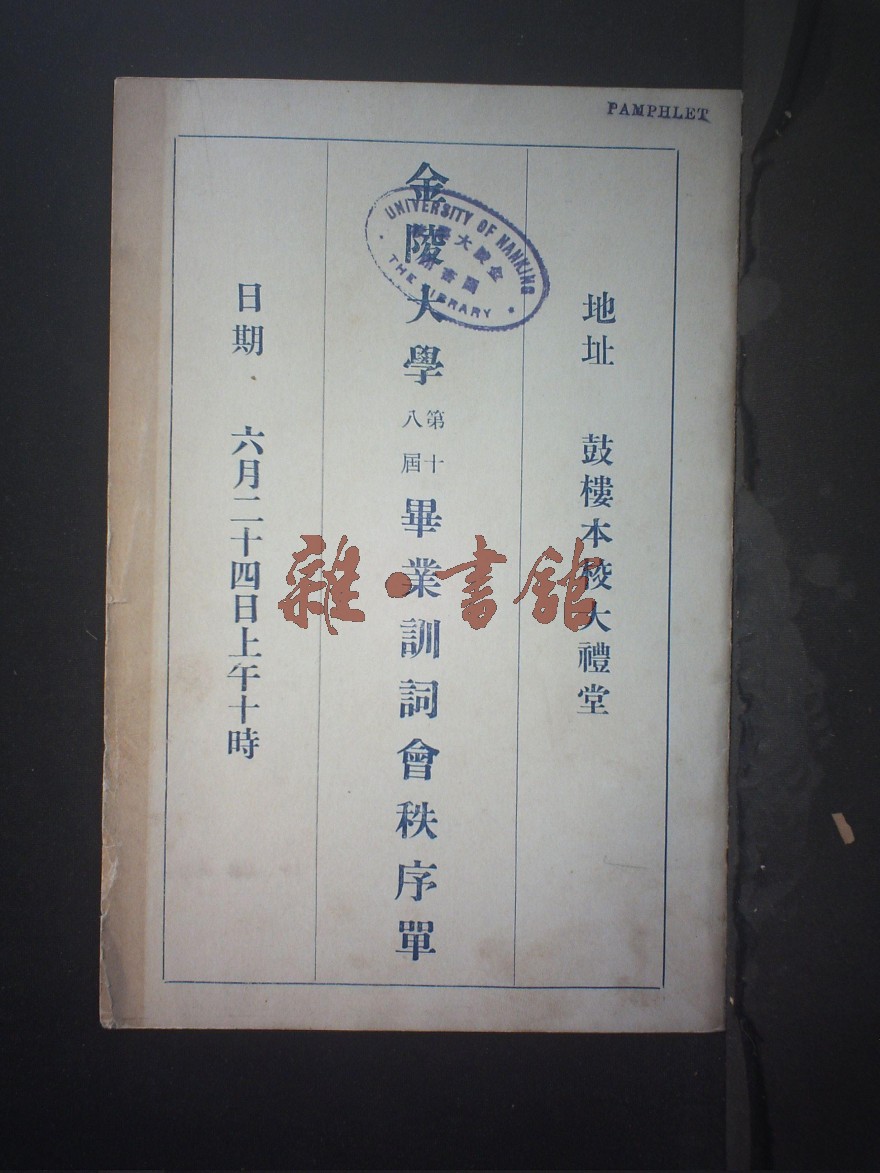 PAMPHLET
地址 鼓樓本校大禮堂
金陵大學第十八屆畢業訓詞會秩序單
日期 六月二十四日上午十時
UNIVERSITY OF NANKING
金陵大學
圖書館
THE LIBRARY
雜·書館